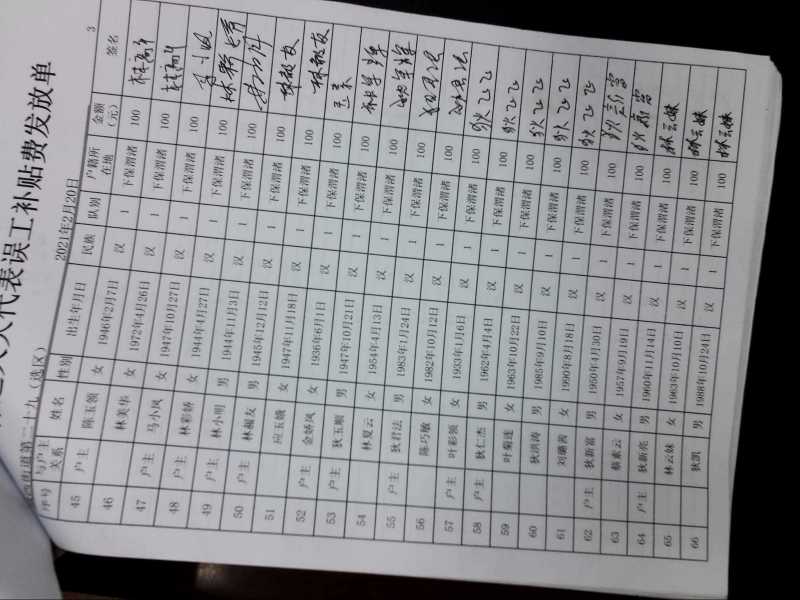 人代表误工补贴费发放单
街道第二十九（选区） 2021年2月20日 3
序号 与户主关系 姓名 性别 出生年月日 民族 队别 户籍所在地 金额（元） 签名
45 户主 陈玉领 女 1946年2月7日 汉 1 下保渭渚 100
46 林美华 女 1972年4月26日 汉 1 下保渭渚 100
47 户主 马小凤 女 1947年10月27日 汉 1 下保渭渚 100
48 户主 林彩娇 女 1944年4月27日 汉 1 下保渭渚 100
49 户主 林小明 男 1944年11月3日 汉 1 下保渭渚 100
50 户主 林福友 男 1945年12月12日 汉 1 下保渭渚 100 林福友
51 应玉娥 女 1947年11月18日 汉 1 下保渭渚 100 林福友
52 户主 金娇凤 女 1936年6月1日 汉 1 下保渭渚 100
53 户主 狄玉顺 男 1947年10月21日 汉 1 下保渭渚 100
54 林夏云 女 1954年4月13日 汉 1 下保渭渚 100
55 户主 狄君法 男 1983年1月24日 汉 1 下保渭渚 100
56 陈巧敏 女 1982年10月12日 汉 1 下保渭渚 100
57 户主 叶彩领 女 1933年1月6日 汉 1 下保渭渚 100
58 户主 狄仁杰 男 1962年4月4日 汉 1 下保渭渚 100 狄飞飞
59 叶菊莲 女 1963年10月22日 汉 1 下保渭渚 100 狄飞飞
60 狄洪涛 男 1985年9月10日 汉 1 下保渭渚 100 狄飞飞
61 刘璐茜 女 1990年8月18日 汉 1 下保渭渚 100 狄飞飞
62 户主 狄新富 男 1950年4月30日 汉 1 下保渭渚 100 狄飞飞
63 蔡素云 女 1957年9月19日 汉 1 下保渭渚 100 狄新富
64 户主 狄新亮 男 1960年11月14日 汉 1 下保渭渚 100 狄新富
65 林云妹 女 1963年10月10日 汉 1 下保渭渚 100 林云妹
66 狄凯 男 1988年10月24日 汉 1 下保渭渚 100 林云妹
林云妹